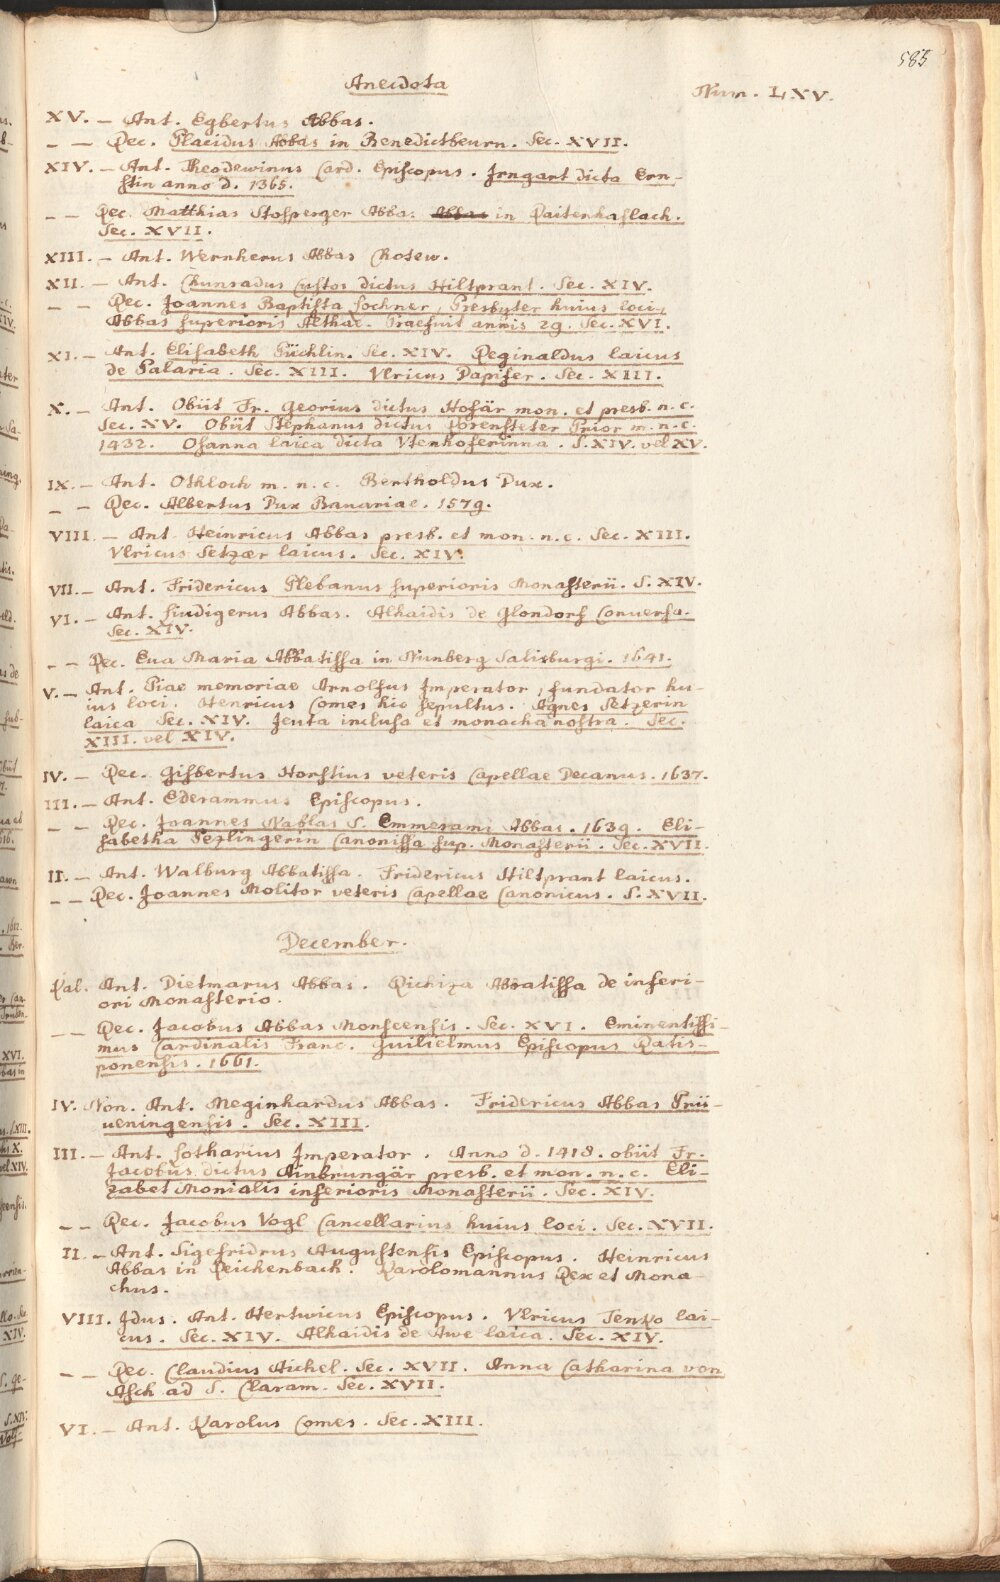 585
Anecdota
Num. LXV.
XV. — Ant. Egbertus Abbas.
— — Rec. Placidus Abbas in Benedictbeurn. Sec. XVII.
XIV. — Ant. Theodewinus Card. Episcopus. Irngart dicta Ern-
stin anno d. 1365.
— — Rec. Matthias Stosperger Abba: Abbas in Raitenhaslach.
Sec. XVII.
XIII. — Ant. Wernherus Abbas Chotew.
XII. — Ant. Chunradus Custos dictus Hiltprant. Sec. XIV.
— — Rec. Joannes Baptista Lochner, Presbyter huius loci,
Abbas superioris Althac. Praefuit annis 29. Sec. XVI.
XI. — Ant. Elisabeth Püchlin. Sec. XIV. Reginaldus laicus
de Palaria. Sec. XIII. Vlricus Dapifer. Sec. XIII.
X. — Ant. Obiit Fr. Georius dictus Hofär mon. et presb. n. c.
Sec. XV. Obiit Stephanus dictus Lorensteter Prior m. n. c.
1432. Osanna laica dicta Vtenhoferinna. S. XIV. vel XV.
IX. — Ant. Othloch m. n. c. Bertholdus Dux.
— — Rec. Albertus Dux Bauariae. 1579.
VIII. — Ant. Heinricus Abbas presb. et mon. n. c. Sec. XIII.
Vlricus Setzær laicus. Sec. XIV.
VII. — Ant. Fridericus Plebanus superioris Monasterii. S. XIV.
VI. — Ant. Liudigerus Abbas. Alhaidis de Glondorf Conuersa.
Sec. XIV.
— — Rec. Eua Maria Abbatissa in Nunberg Salisburgi. 1641.
V. — Ant. Piae memoriae Arnolfus Imperator, fundator hu-
ius loci. Henricus Comes hic sepultus. Agnes Setzerin
laica Sec. XIV. Jeuta inclusa et monacha nostra. Sec.
XIII. vel XIV.
IV. — Rec. Gisbertus Horstius veteris Capellae Decanus. 1637.
III. — Ant. Ederammus Episcopus.
— — Rec. Joannes Nablas S. Emmerami Abbas. 1639. Eli-
sabetha Pezlingerin Canonissa sup. Monasterii. Sec. XVII.
II. — Ant. Walburg Abbatissa. Fridericus Hiltprant laicus.
— — Rec. Joannes Molitor veteris Capellae Canonicus. S. XVII.
December.
Kal. Ant. Dietmarus Abbas. Richiza Abbatissa de inferi-
ori Monasterio.
— — Rec. Jacobus Abbas Monseensis. Sec. XVI. Eminentissi-
mus Cardinalis Franc. Guilielmus Episcopus Ratis-
ponensis. 1661.
IV. Non. Ant. Meginhardus Abbas. Fridericus Abbas Prü-
ueningensis. Sec. XIII.
III. — Ant. Lotharius Imperator. Anno d. 1418. obiit Fr.
Jacobus dictus Ainbrungär presb. et mon. n. c. Eli-
zabet Monialis inferioris Monasterii. Sec. XIV.
— — Rec. Jacobus Vogl Cancellarius huius loci. Sec. XVII.
II. — Ant. Sigefridus Augustensis Episcopus. Heinricus
Abbas in Reichenbach. Karolomannus Rex et Mona-
chus.
VIII. Idus. Ant. Hertwicus Episcopus. Vlricus Tenko lai-
cus. Sec. XIV. Alhaidis de Awe laica. Sec. XIV.
— — Rec. Claudius Aichel. Sec. XVII. Anna Catharina von
Asch ad S. Claram. Sec. XVII.
VI. — Ant. Karolus Comes. Sec. XIII.